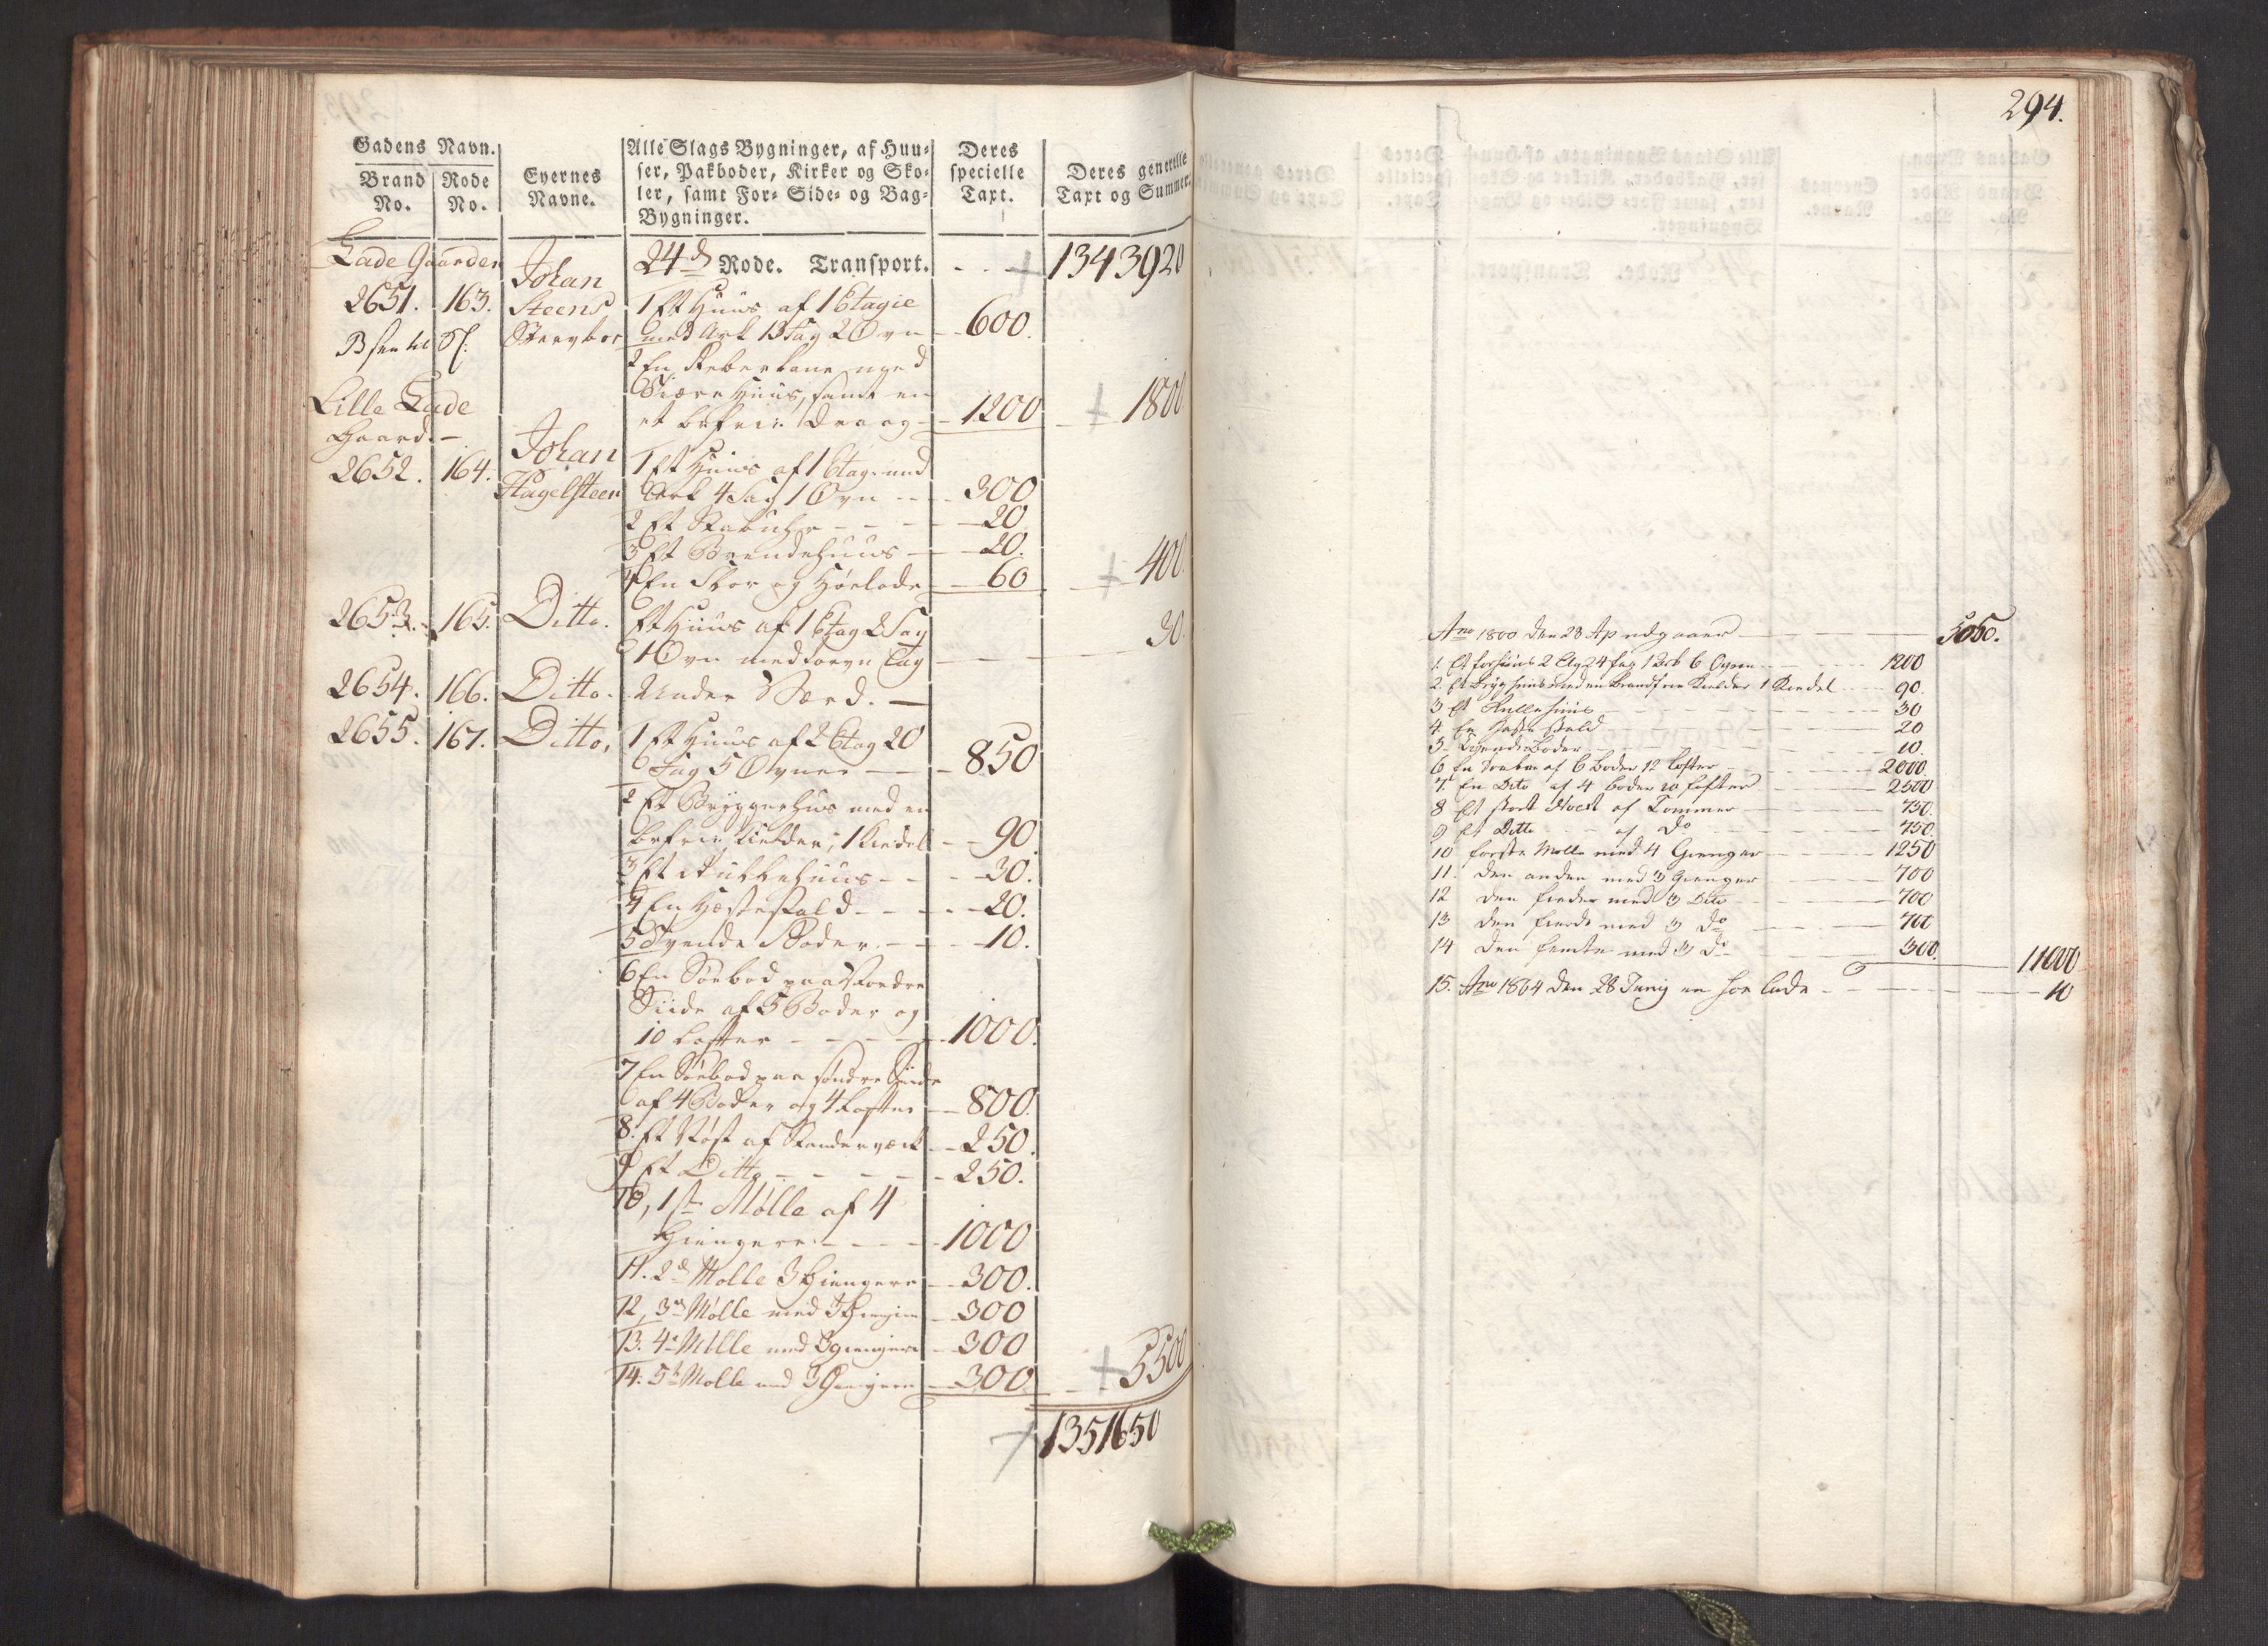 Gadens Navn.
Brand No. Rode No.
Eyernes Navne.
Alle Slags Bygninger, af Huu-
ser, Pakboder, Kirker og Sko-
ler, samt For- Side- og Bag-
Bygninger.
Deres specielle Taxt.
Deres generelle Taxt og Summer.
Lade Gaarden
24d Rode. Transport. 1343920
2651. 163. Johan Steens
1 Et Huus af 1 Etagie
med Ark 13 Fag 2 Ovn 600.
2 En Reberbane med
Huus, samt en
et 1200 1800
Lille Lade
Gaard.
2652. 164. Johan Hagelsteen
1 Et Huus af 1 Etag. med
Ark 4 Fag 1 Ovn 300
2 Et 20
3 Et Brendehuus 20.
4 En Flor og Høelade 60 400
2653. 165. Ditto. Et Huus af 1 Etag 2 Fag
1 Ovn med torvn Tag 30
2654. 166. Ditto. Under Værd.
2655. 167. Ditto, 1 Et Huus af 2 Etag 20
Fag 5 Ovner 850
2 Et Bryggerhus med en
Kielder, 1 Kiedel 90
3 Et Rullehuus 30.
4 En Hestestald 20.
5 Svende Boder 10.
6 En Søebod paa Nordre
Siide af 5 Boder og
10 Lofter 1000.
7 En Søebod paa søndre Side
af 4 Boder og 4 Lofter 800.
8. Et Nøst af Stenderværk 250.
9 Et Ditto 250.
10, 1ste Mølle af 4
Giengere 1000
11. 2d Mølle 3 Giengere 300.
12, 3d Mølle med 3 300
13. 4e Mølle med 3 giengere 300
14. 5t Mølle med 3 Giengere 300 5500
1351650
294.
Ano 1800 den 28 Ap udgaaer 5050.
1. Et forhuus 2 Etg 24 fag 1 Ark 6 Ogene 1200
2. Et Bryghuus med en Brandfrie Kielder 1 Kiedel 90.
3 Et Rullehuus 30
4 En Heste stald 20
5 Svende Boder 10.
6 En af 6 Boder 12 Lofter 2000.
7. En Dito af 4 boder 10 Lofter 2500
8 Et stort Noest af Tommer 750.
9 Et Ditto af Do 750.
10 første Mølle med 4 Gienger 1250
11. Den anden med 3 Gienger 700
12 Den med 3 Dito 700
13 Den fierde med 3 Do 700
14 Den femte med 3 Do 300. 11000
15. Ano 1804 den 28 Junij en Hoe lade 10